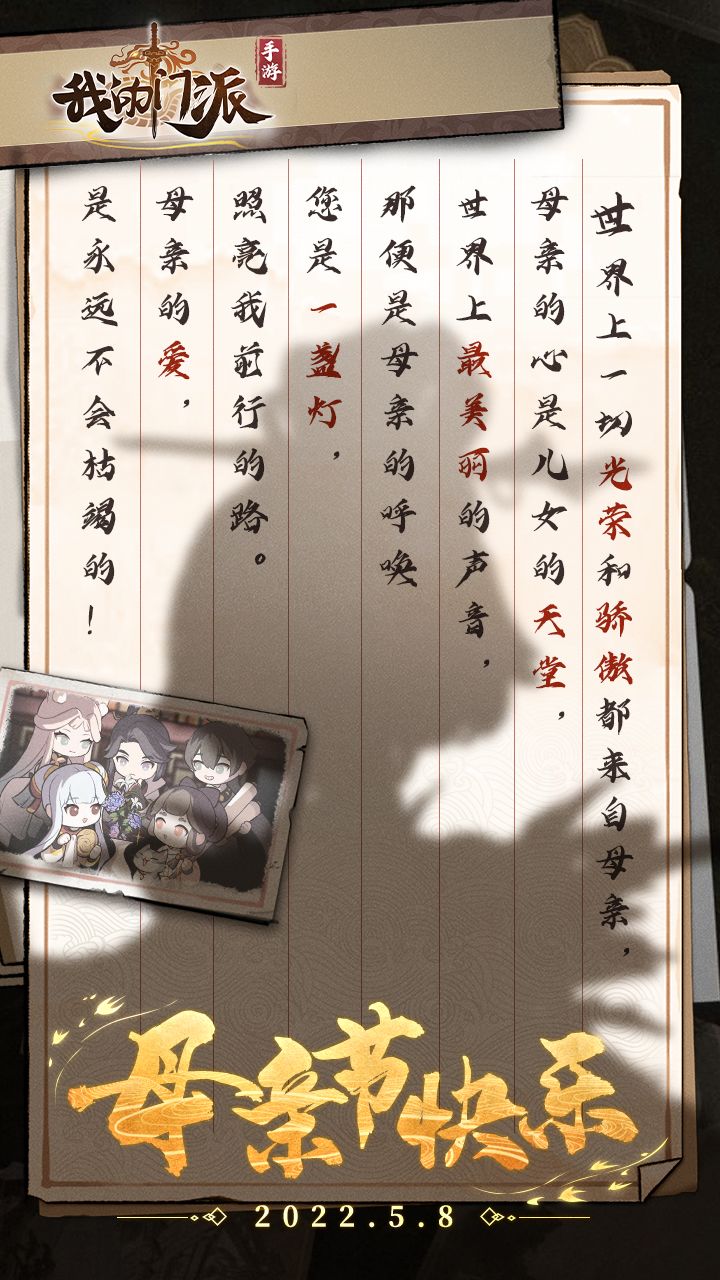 我的门派
手游
世界上一切光荣和骄傲都来自母亲，
母亲的心是儿女的天堂，
世界上最美丽的声音，
那便是母亲的呼唤
您是一盏灯，
照亮我前行的路。
母亲的爱，
是永远不会枯竭的！
母亲节快乐
2022.5.8